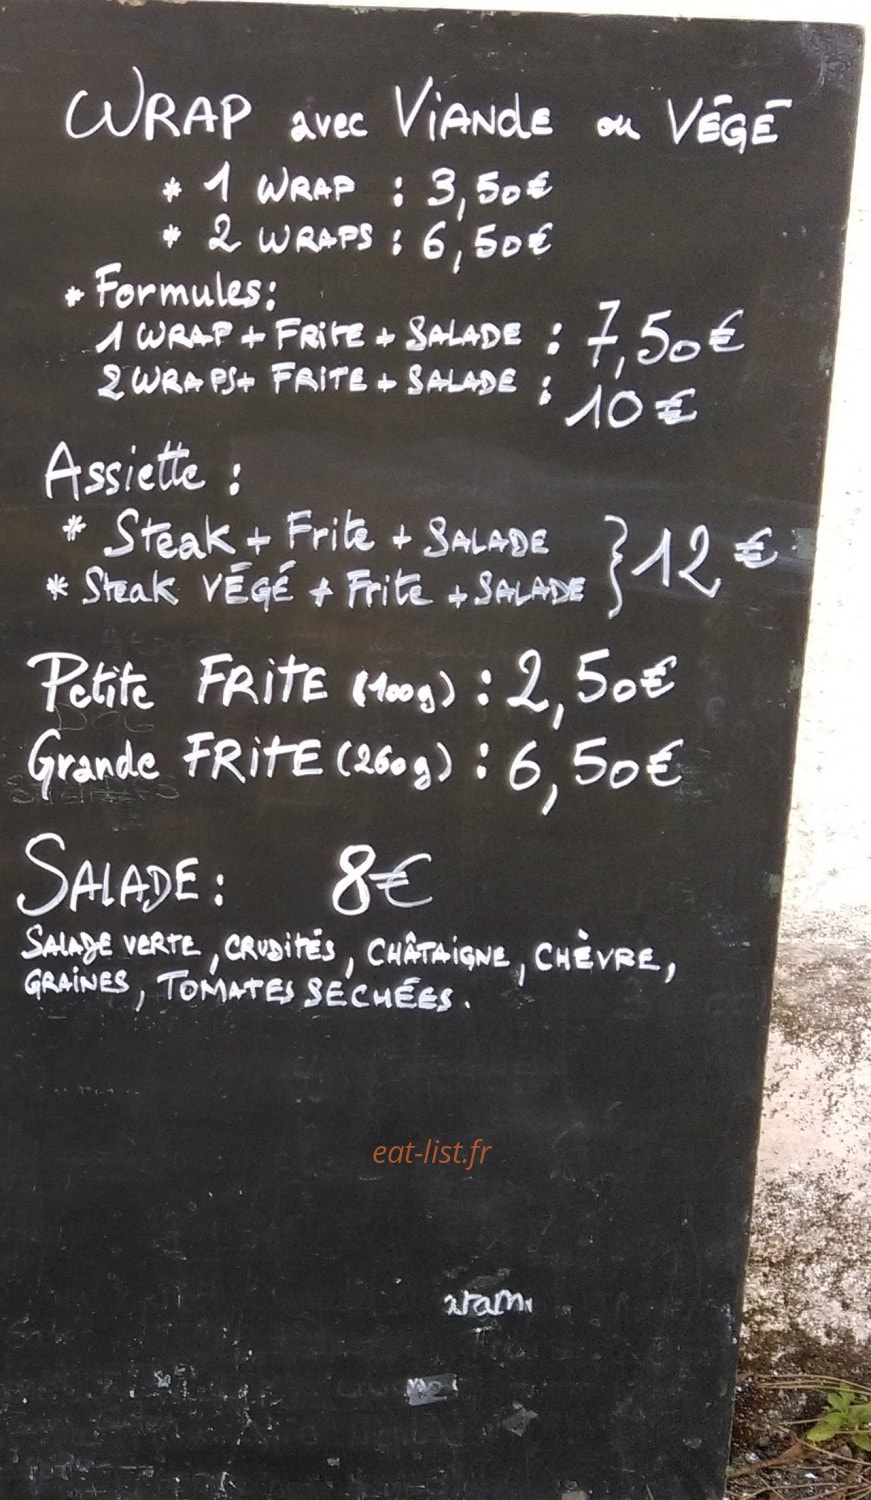 WRAP avec VIANDE ou VÉGÉ
* 1 WRAP : 3,50€
* 2 WRAPS : 6,50€
* Formules:
1 WRAP + FRITE + SALADE : 7,50€
2 WRAPS + FRITE + SALADE : 10€
Assiette :
* Steak + Frite + SALADE
* Steak VÉGÉ + Frite + SALADE } 12€
Petite FRITE (100g) : 2,50€
Grande FRITE (260g) : 6,50€
SALADE : 8€
SALADE VERTE, CRUDITÉS, CHÂTAIGNE, CHÈVRE,
GRAINES, TOMATES SECHÉES.
eat-list.fr